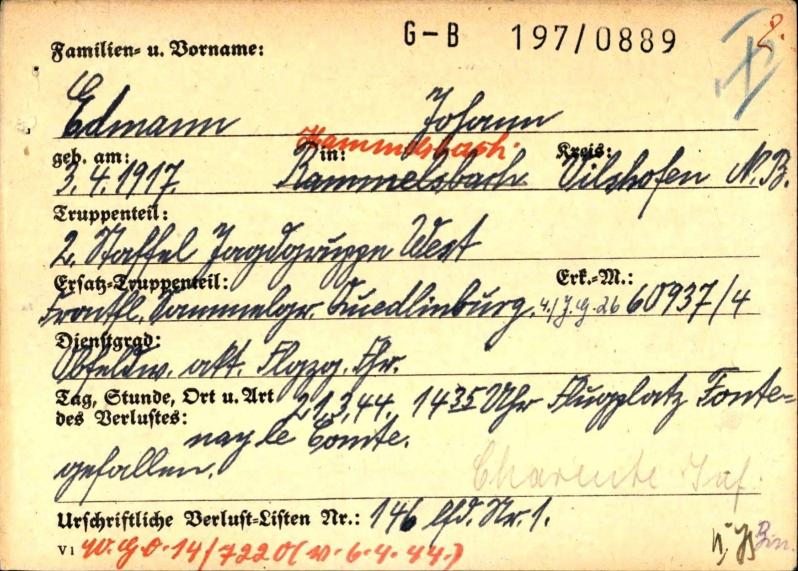 G-B 197/0889
8.
Familien- u. Vorname:
Edmann Johann
Hammelsbach.
geb. am: in: Kreis:
3.4.1917. Rammelsbach Vilshofen N.B.
Truppenteil:
2. Staffel Jagdgruppe West
Ersatz-Truppenteil: Erk.-M.:
Frontfl. Sammelgr. Quedlinburg. 4./J.G.26 60937/4
Dienstgrad:
Obfeldw. akt. Flgzg. Fhr.
Tag, Stunde, Ort u. Art 21.3.44. 14 35 Uhr Flugplatz Fonte-
des Verlustes: nay le Comte.
gefallen. Charente Inf.
Urschriftliche Verlust-Listen Nr.: 146 lfd. Nr. 1.
V1 14/7220 (v. 6.4.44.)